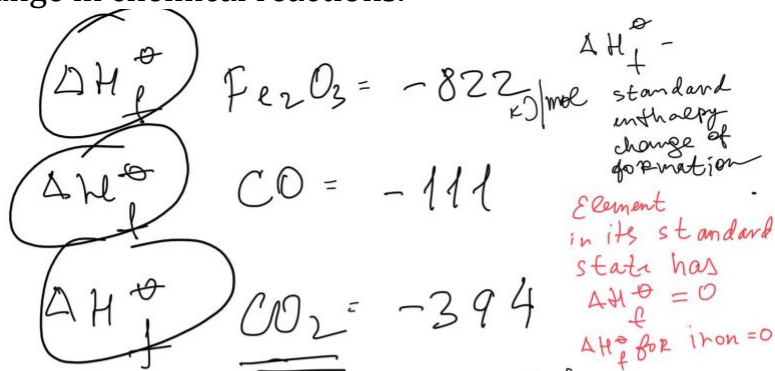 ange in chemical reactions.
ΔH f ⦵ Fe₂O₃ = -822 kJ/mol
ΔH f ⦵ CO = -111
ΔH f ⦵ CO₂ = -394
ΔH f ⦵ -
standard
enthalpy
change of
formation
Element
in its standard
state has
ΔH f ⦵ = 0
ΔH f ⦵ for iron = 0